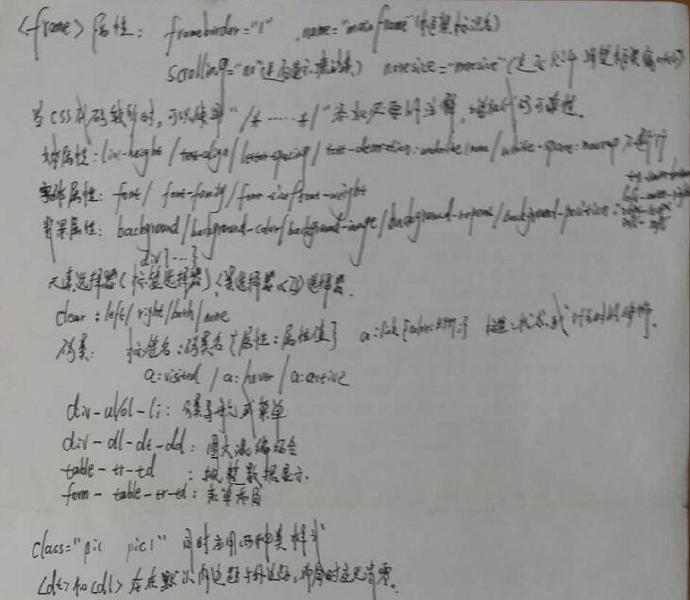 <frame>属性: frameborder="1" name="mainframe"(框架标识名)
scrolling="no"(是否显示滚动条) noresize="noresize"(是否允许调整框架窗口大小)
当CSS代码较多时,可以使用"/*……*/"添加必要的注释,增加代码可读性。
文本属性:line-height/text-align/letter-spacing/text-decoration:underline/none/white-space:nowrap不换行
字体属性: font/font-family/font-size/font-weight
背景属性: background/background-color/background-image/background-repeat/background-position:
div{……}
元素选择器(标签选择器)
clear:left/right/both/none
伪类: 标签名:伪类名{属性:属性值} a:link
a:visited / a:hover / a:active
div-ul/ol-li: 菜单
div-dl-dt-dd: 图文混编
table-tr-td : 规整数据显示.
form-table-tr-td: 表单布局
class="pic pic1" 同时应用两种类样式
<dt>和<dl>存在默认内边距与外边距,